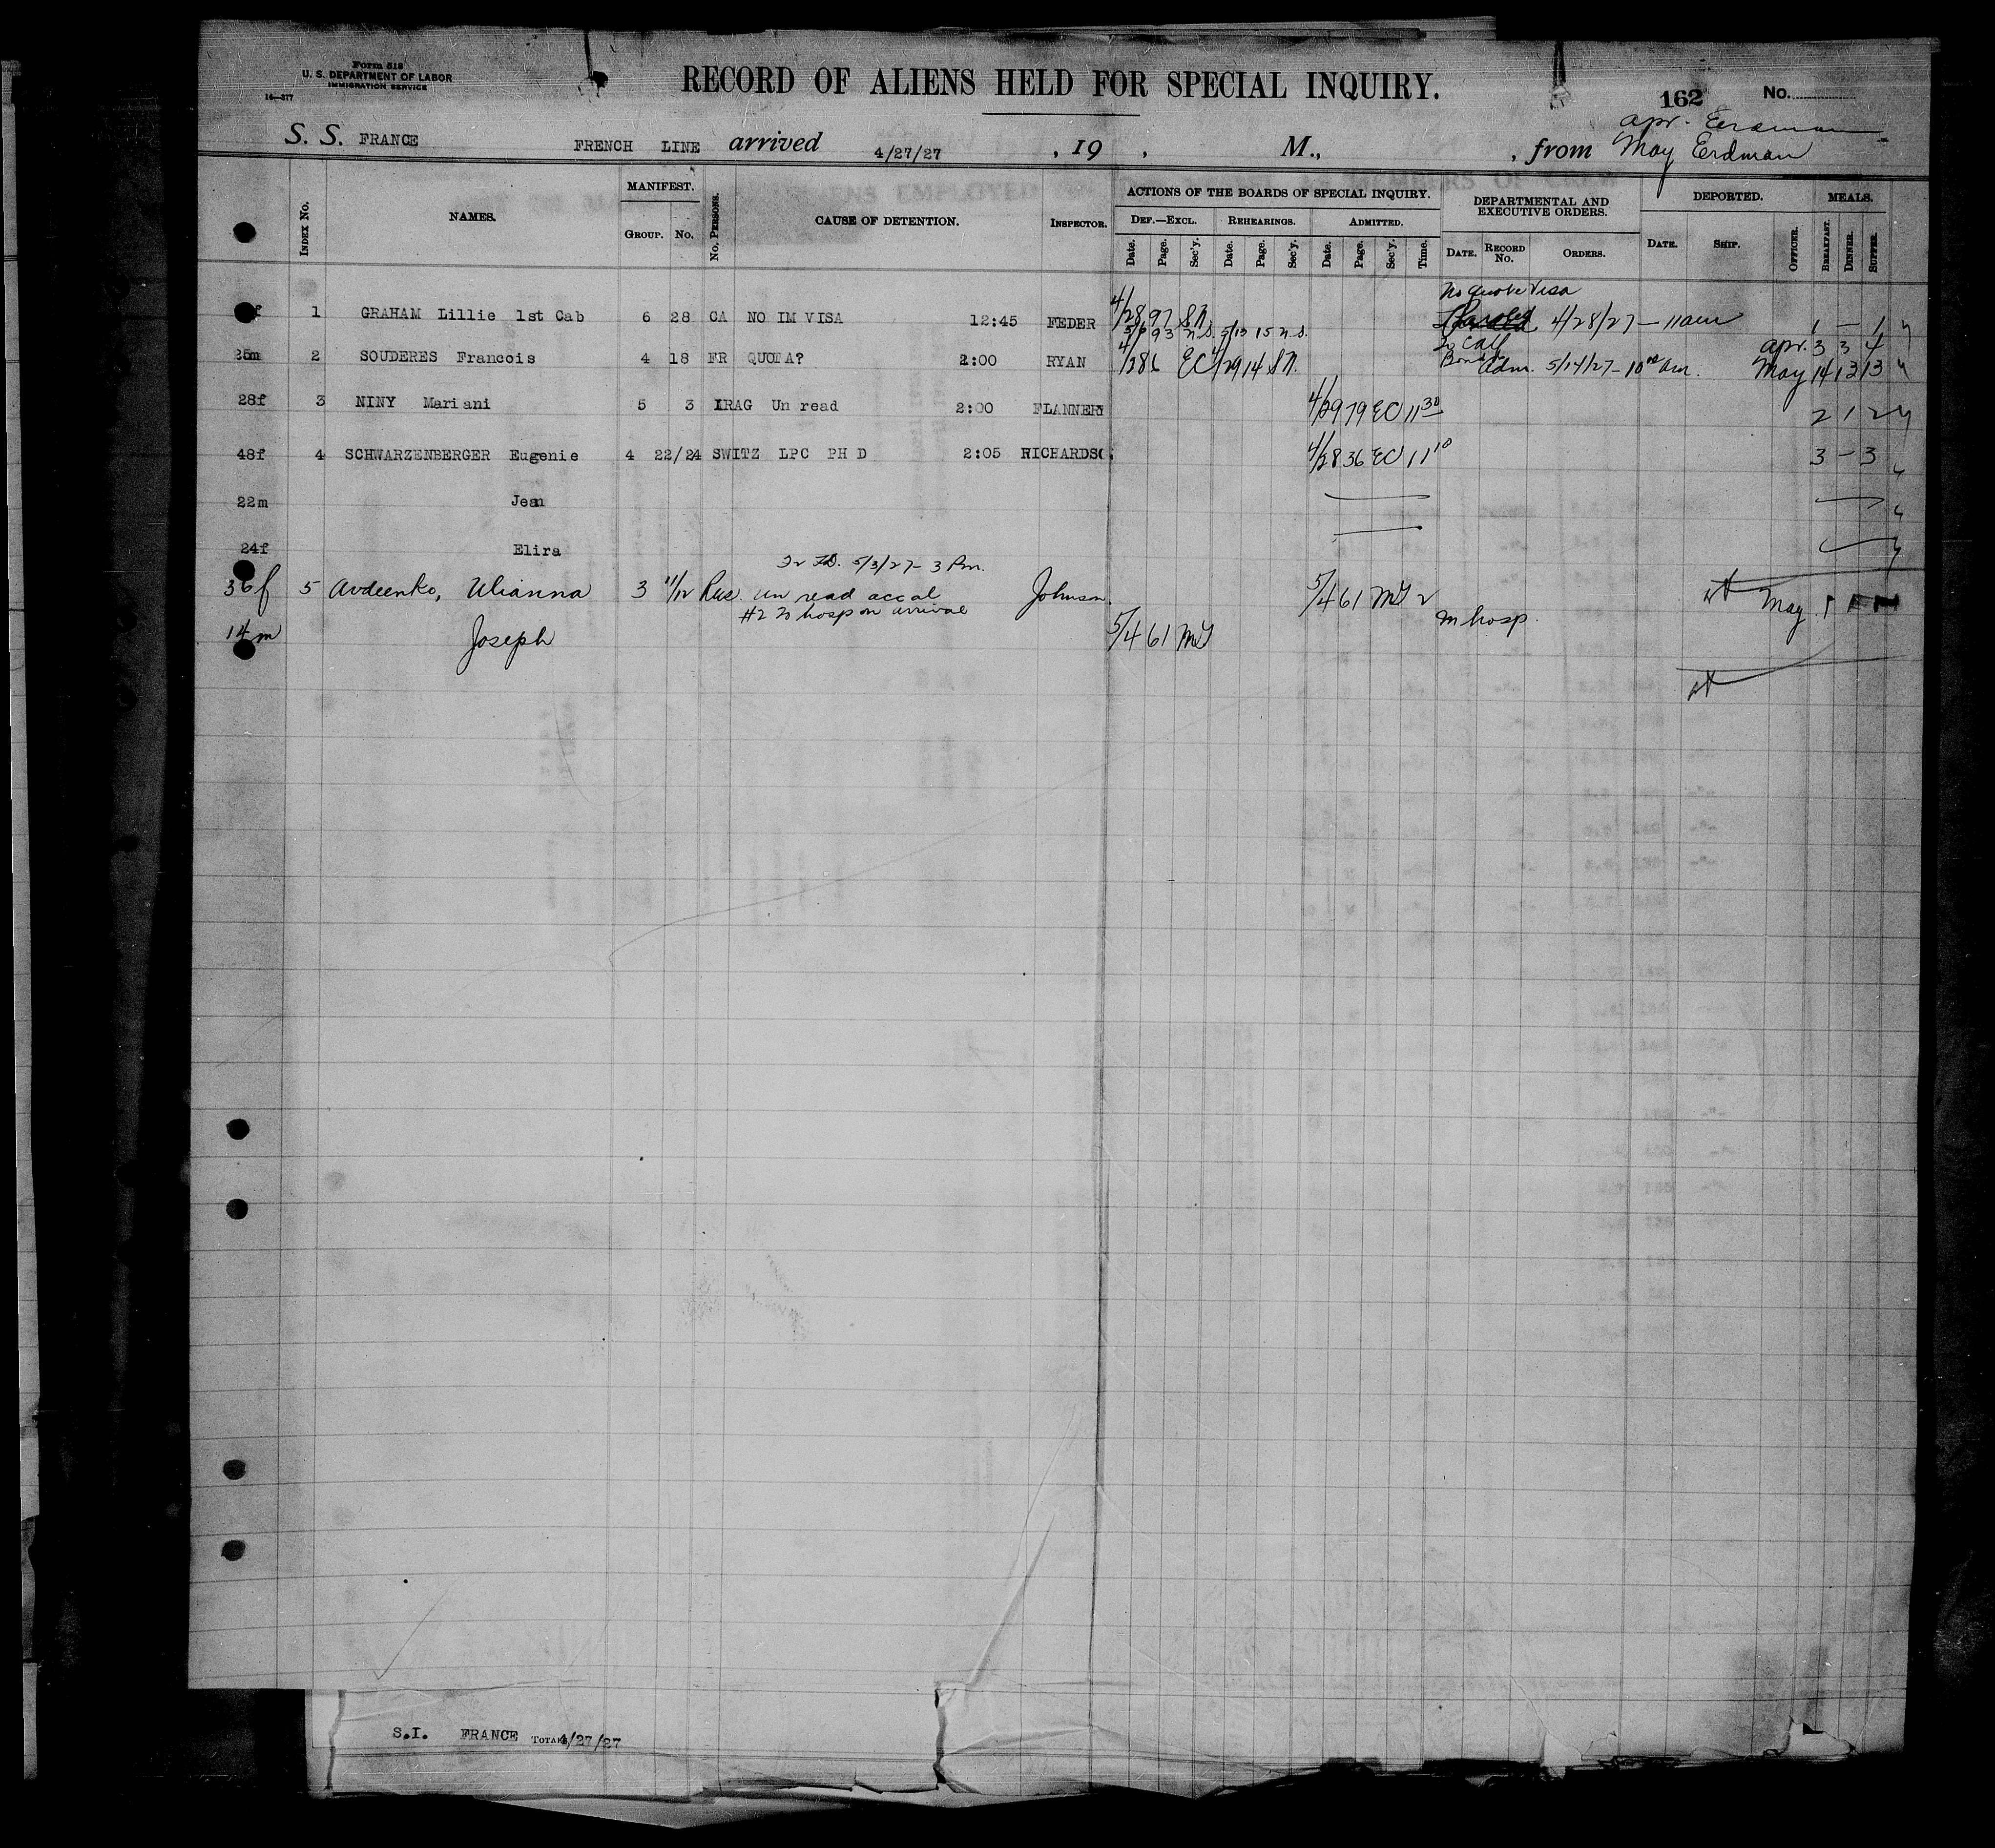 Form 518
U. S. DEPARTMENT OF LABOR
IMMIGRATION SERVICE
14—377
RECORD OF ALIENS HELD FOR SPECIAL INQUIRY.
162 No.
Apr. Erdman
S. S. FRANCE FRENCH LINE arrived 4/27/27 , 19 , M., , from May Erdman
Index No. NAMES. MANIFEST. Group. No. No. Persons. CAUSE OF DETENTION. Inspector. ACTIONS OF THE BOARDS OF SPECIAL INQUIRY. Def.—Excl. Rehearings. Admitted. Date. Page. Sec'y. Date. Page. Sec'y. Date. Page. Sec'y. Time. DEPARTMENTAL AND EXECUTIVE ORDERS. Date. Record No. Orders. DEPORTED. Date. Ship. Officer. MEALS. Breakfast. Dinner. Supper.
No Quota Visa
f 1 GRAHAM Lillie 1st Cab 6 28 CA NO IM VISA 12:45 FEDER 4/28 97 SN 4/28/27 — 11am 1 — 1
5/6 93 n.s. 5/13 15 n.s. Apr. 3 3 4
25m 2 SOUDERES Francois 4 18 FR QUOTA? 2:00 RYAN 4/28 6 EC 4/29 14 SN. Bond Adm. 5/14/27 — 10 am. May 14 13 13
28f 3 NINY Mariani 5 3 IRAG Un read 2:00 FLANNERY 4/29 79 EC 11 30 2 1 2
48f 4 SCHWARZENBERGER Eugenie 4 22/24 SWITZ LPC PH D 2:05 RICHARDSO 4/28 36 EC 11 10 3 — 3
22m Jean
24f Elira
5/3/27 — 3 Pm.
36f 5 Avdeenko, Ulianna 3 11/12 Rus. un read accal Johnson 5/4 61 MY 2 May
#2 to hosp on arrival
In hosp.
14m Joseph 5/4 61 MY
S.I. FRANCE Total 4/27/27